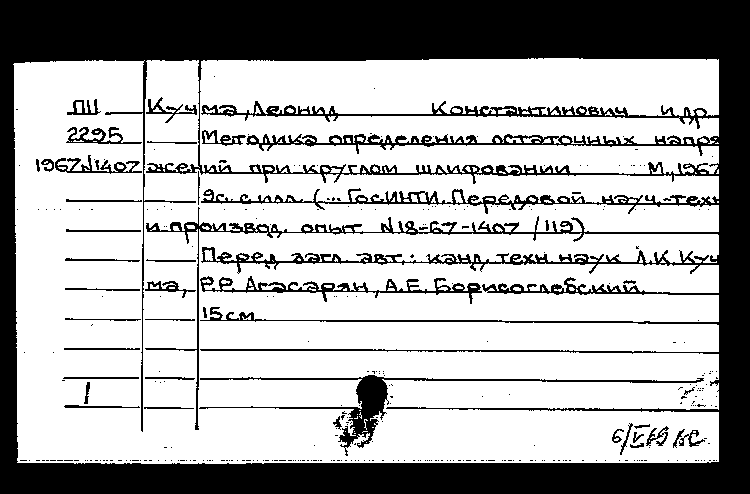 ПII Кучма, Леонид Константинович и др.
2295 Методика определения остаточных напря
1967N1407 жений при круглом шлифовании М., 1967
9с. с илл. (... ГосИНТИ. Передовой науч.-техн
и производ. опыт. N18-67-1407 /119)
Перед загл. авт.: канд. техн. наук Л.К. Куч
ма, Р.Р. Агасарян, А.Е. Борисоглебский.
15 см
1